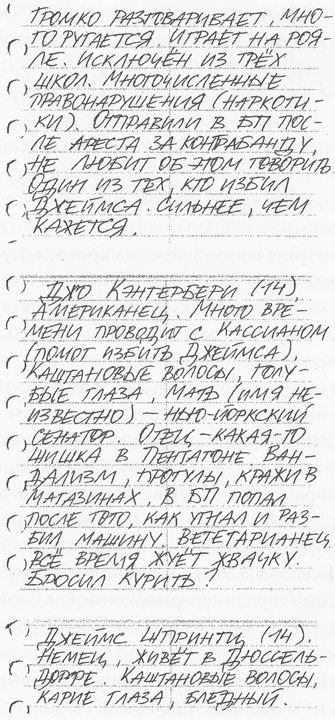 ГРОМКО РАЗГОВАРИВАЕТ, МНО-
ГО РУГАЕТСЯ. ИГРАЕТ НА РОЯ-
ЛЕ. ИСКЛЮЧЁН ИЗ ТРЁХ
ШКОЛ. МНОГОЧИСЛЕННЫЕ
ПРАВОНАРУШЕНИЯ (НАРКОТИ-
КИ). ОТПРАВИЛИ В БП ПОС-
ЛЕ АРЕСТА ЗА КОНТРАБАНДУ,
НЕ ЛЮБИТ ОБ ЭТОМ ГОВОРИТЬ.
ОДИН ИЗ ТЕХ, КТО ИЗБИЛ
ДЖЕЙМСА. СИЛЬНЕЕ, ЧЕМ
КАЖЕТСЯ.
ДЖО КЭНТЕРБЕРИ (14).
АМЕРИКАНЕЦ. МНОГО ВРЕ-
МЕНИ ПРОВОДИТ С КАССИАНОМ
(ПОМОГ ИЗБИТЬ ДЖЕЙМСА).
КАШТАНОВЫЕ ВОЛОСЫ, ГОЛУ-
БЫЕ ГЛАЗА, МАТЬ (ИМЯ НЕ-
ИЗВЕСТНО) — НЬЮ-ЙОРКСКИЙ
СЕНАТОР. ОТЕЦ — КАКАЯ-ТО
ШИШКА В ПЕНТАГОНЕ. ВАН-
ДАЛИЗМ, ПРОГУЛЫ, КРАЖИ В
МАГАЗИНАХ, В БП ПОПАЛ
ПОСЛЕ ТОГО, КАК УГНАЛ И РАЗ-
БИЛ МАШИНУ. ВЕГЕТАРИАНЕЦ.
ВСЁ ВРЕМЯ ЖУЁТ ЖВАЧКУ.
БРОСИЛ КУРИТЬ?
ДЖЕЙМС ШПРИНТЦ (14).
НЕМЕЦ, ЖИВЁТ В ДЮССЕЛЬ-
ДОРФЕ. КАШТАНОВЫЕ ВОЛОСЫ,
КАРИЕ ГЛАЗА, БЛЕДНЫЙ.